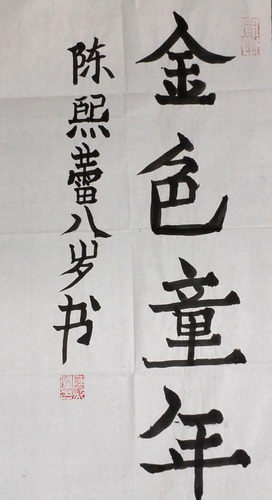 金色童年
陈熙蕾八岁书